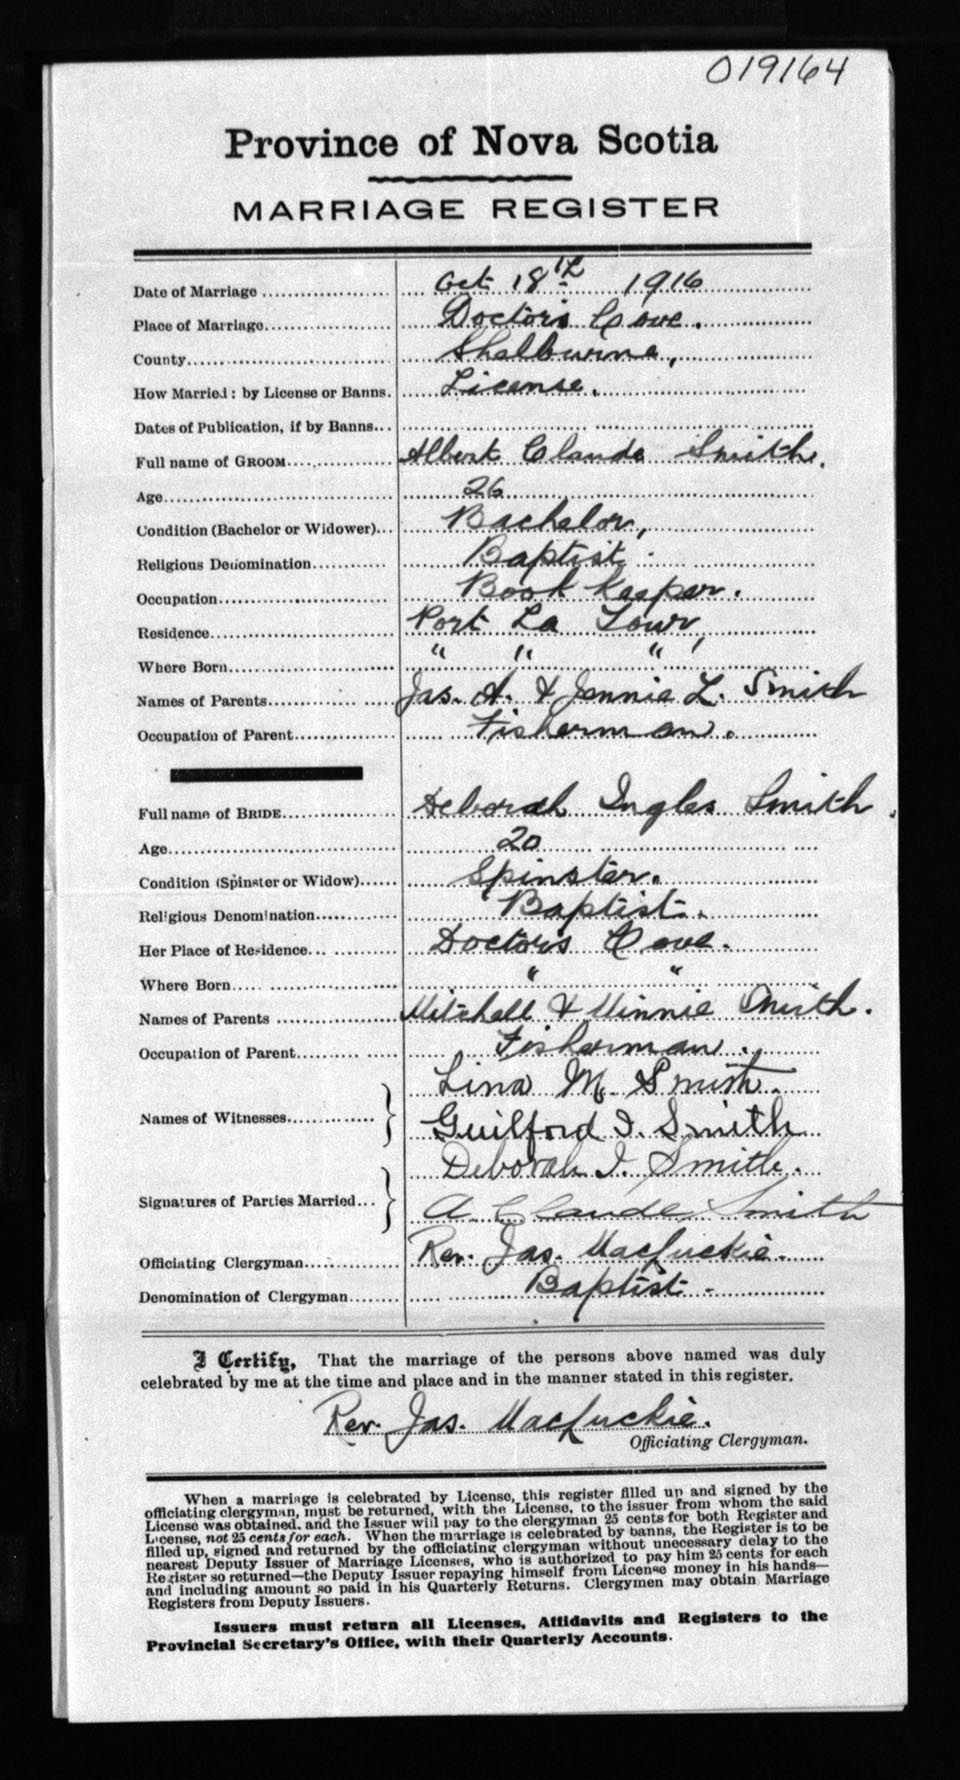 019164
Province of Nova Scotia
MARRIAGE REGISTER
Date of Marriage Oct 18th 1916
Place of Marriage Doctors Cove.
County Shelburne,
How Married: by License or Banns. License.
Dates of Publication, if by Banns
Full name of GROOM Albert Claude Smith.
Age 26
Condition (Bachelor or Widower) Bachelor,
Religious Denomination Baptist.
Occupation Book Keeper.
Residence Port La Tour,
Where Born " " "
Names of Parents Jas. A. & Jennie L. Smith
Occupation of Parent Fisherman.
Full name of BRIDE Deborah Ingles Smith.
Age 20
Condition (Spinster or Widow) Spinster.
Religious Denomination Baptist.
Her Place of Residence Doctors Cove.
Where Born " "
Names of Parents Mitchell & Minnie Smith.
Occupation of Parent Fisherman.
Lina M. Smith.
Names of Witnesses Guilford I. Smith
Deborah I. Smith.
Signatures of Parties Married A. Claude Smith
Officiating Clergyman Rev. Jas.
Denomination of Clergyman Baptist
I Certify, That the marriage of the persons above named was duly
celebrated by me at the time and place and in the manner stated in this register.
Rev. Jas.
Officiating Clergyman.
When a marriage is celebrated by License, this register filled up and signed by the
officiating clergyman, must be returned, with the License, to the issuer from whom the said
License was obtained, and the Issuer will pay to the clergyman 25 cents for both Register and
License, not 25 cents for each. When the marriage is celebrated by banns, the Register is to be
filled up, signed and returned by the officiating clergyman without unecessary delay to the
nearest Deputy Issuer of Marriage Licenses, who is authorized to pay him 25 cents for each
Register so returned—the Deputy Issuer repaying himself from License money in his hands—
and including amount so paid in his Quarterly Returns. Clergymen may obtain Marriage
Registers from Deputy Issuers.
Issuers must return all Licenses, Affidavits and Registers to the
Provincial Secretary's Office, with their Quarterly Accounts.